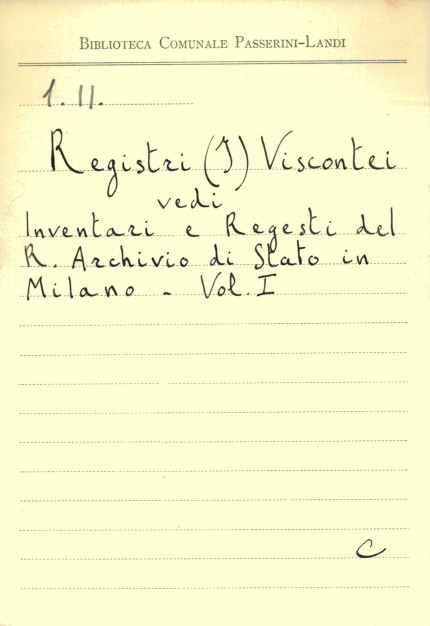 BIBLIOTECA COMUNALE PASSERINI-LANDI
1. II.
Registri (I) Viscontei
vedi
Inventari e Regesti del
R. Archivio di Stato in
Milano - Vol. I
C